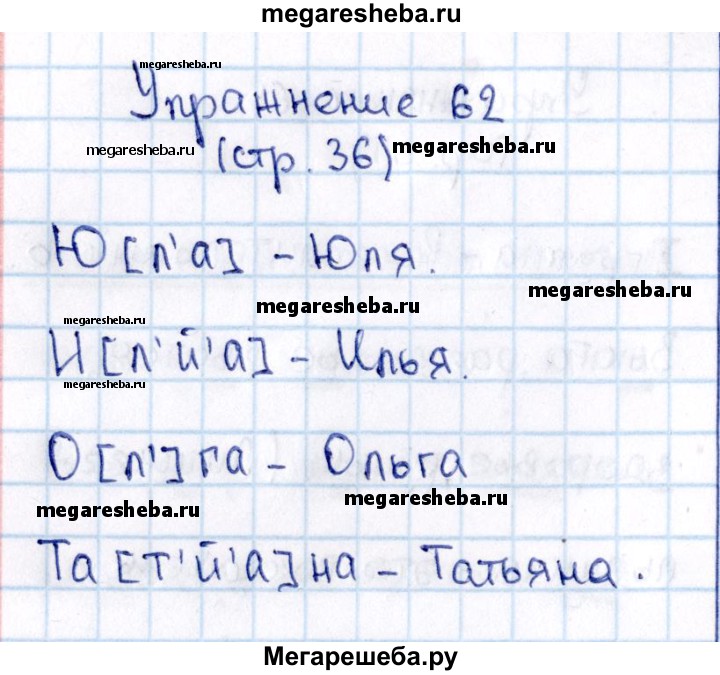 megaresheba.ru
megaresheba.ru
Упражнение 62
megaresheba.ru
(стр. 36)
megaresheba.ru
Ю[л'а] - Юля.
megaresheba.ru
megaresheba.ru
megaresheba.ru
И[л'й'а] - Илья.
megaresheba.ru
О[л']га - Ольга
megaresheba.ru
megaresheba.ru
Та[т'й'а]на - Татьяна.
Мегарешеба.ру